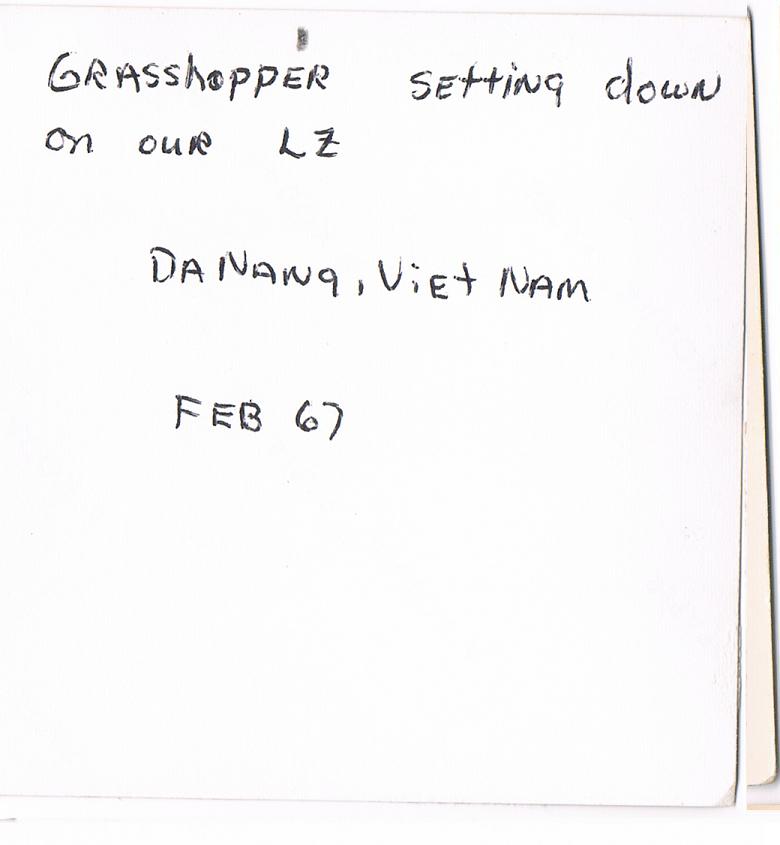 GRASshoPPER SETTiNg down
on ouR LZ
DA NANg, ViEt NAM
FEB 67